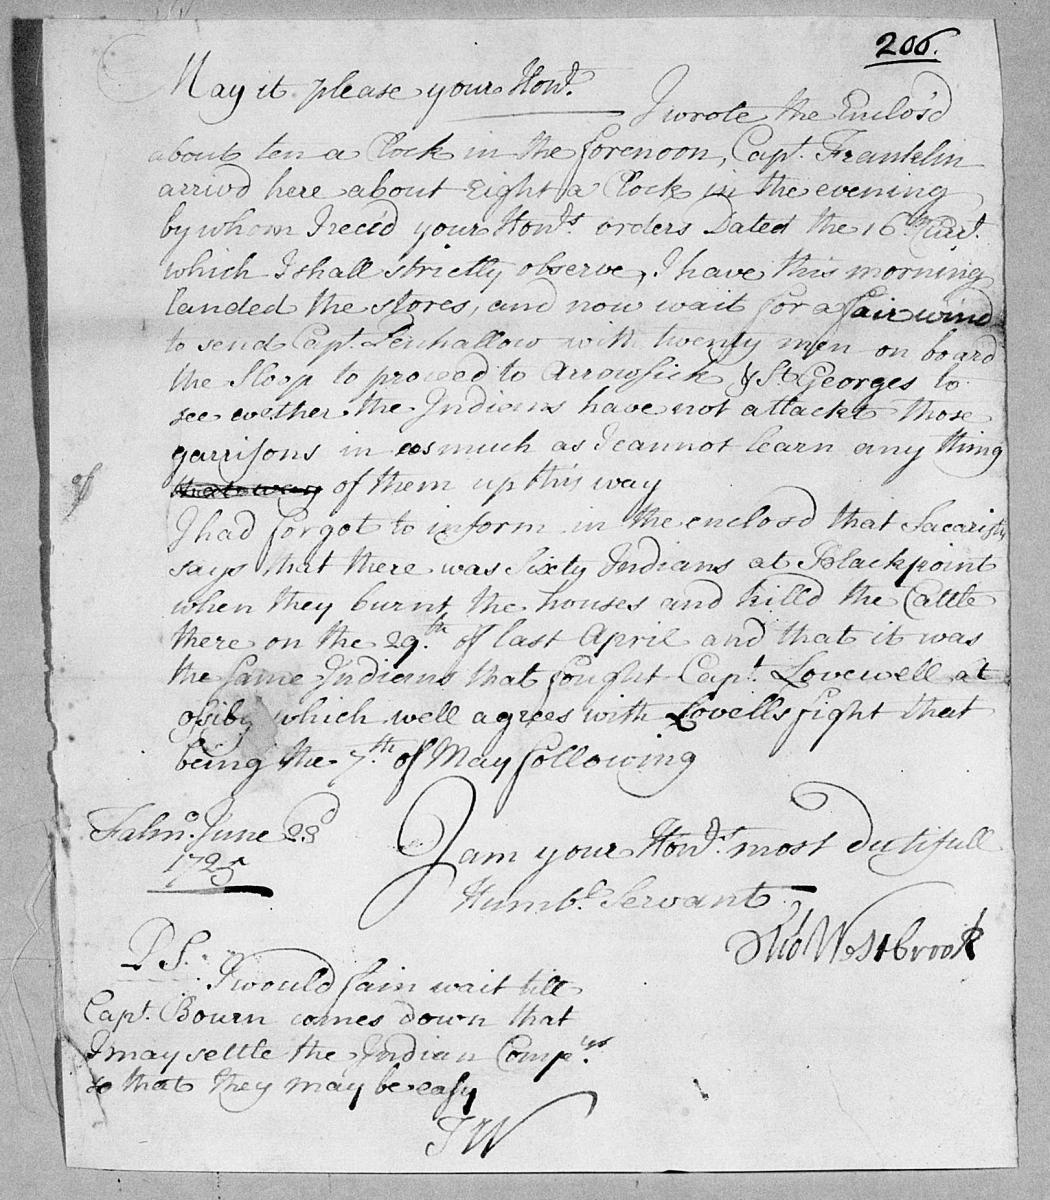 206.
May it please your Hon.r
I wrote the Enclos'd
about ten a Clock in the forenoon, Capt. Franklin
arriv'd here about Eight a Clock in the evening
by whom I rece'd your Hon.rs orders Dated the 16th Curt.
which I shall strictly observe, I have this morning
landed the stores, and now wait for a fair wind
to send Capt. Penhallow with twenty men on board
the Sloop to proceed to Arrowsick & St Georges to
see wether the Indians have not attackt those
garrisons in as much as I cannot learn any thing
of them up this way
I had forgot to inform in the enclosd that Sacaristy
says that there was Sixty Indians at Blackpoint
when they burnt the houses and killd the Cattle
there on the 29.th of last April and that it was
the same Indians that fought Capt. Lovewell at
Osiby which well agrees with Lovells fight that
being the 7.th of May following
Falmo. June 23d
1725
I am your Hon.rs most dutifull
Humble. Servant
Tho Westbrook
P S.
I would fain wait till
Capt. Bourn comes down that
I may settle the Indian Comp.ies
so that they may be easy
T W